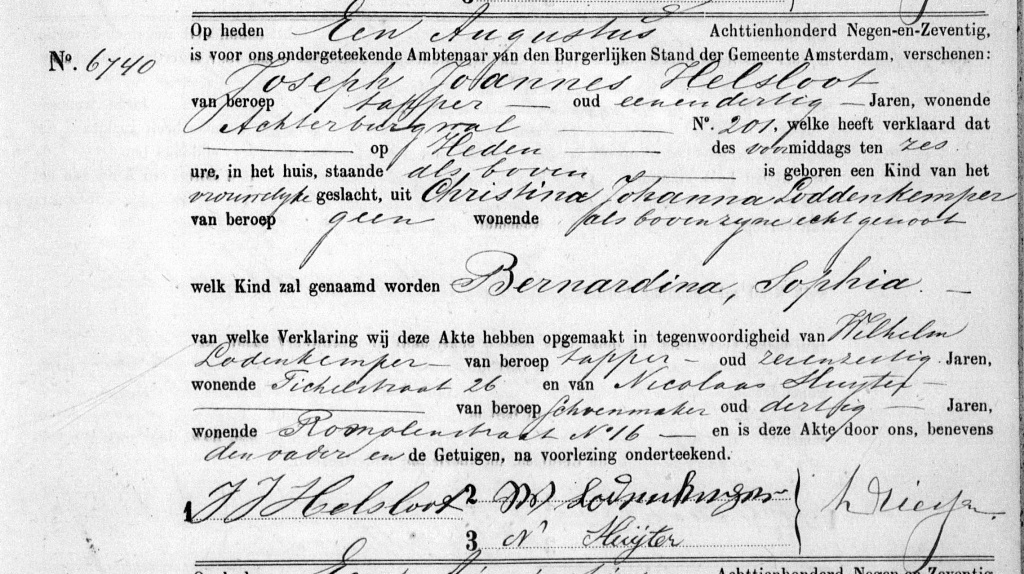 Op heden Een Augustus Achttienhonderd Negen-en-Zeventig,
Nº. 6740
is voor ons ondergeteekende Ambtenaar van den Burgerlijken Stand der Gemeente Amsterdam, verschenen:
Joseph Joannes Helsloot
van beroep tapper — oud eenendertig — Jaren, wonende
Achterburgwal — Nº. 201, welke heeft verklaard dat
— op Heden — des voormiddags ten zes
ure, in het huis, staande als boven is geboren een Kind van het
vrouwelyke geslacht, uit Christina Johanna Loddenkemper
van beroep geen wonende als boven zyne echtgenoot
welk Kind zal genaamd worden Bernardina, Sophia. —
van welke Verklaring wij deze Akte hebben opgemaakt in tegenwoordigheid van Wilhelm
Lodenkemper — van beroep tapper — oud zevenzestig Jaren,
wonende Tichelstraat 26 en van Nicolaas Huyter —
— van beroep Schoenmaker oud dertig — Jaren,
wonende Romolenstraat Nº 16 — en is deze Akte door ons, benevens
den vader en de Getuigen, na voorlezing onderteekend.
1 J J Helsloot 2 W
3 N Huijter
Achttienhonderd Negen-en-Zeventig